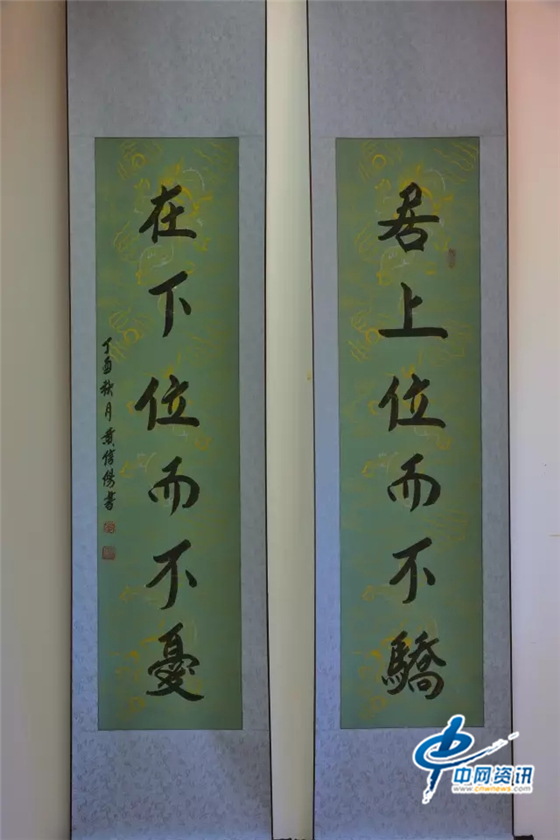 居上位而不驕
在下位而不憂
丁酉秋月黄信儒書
中网资讯
www.cnwnews.com